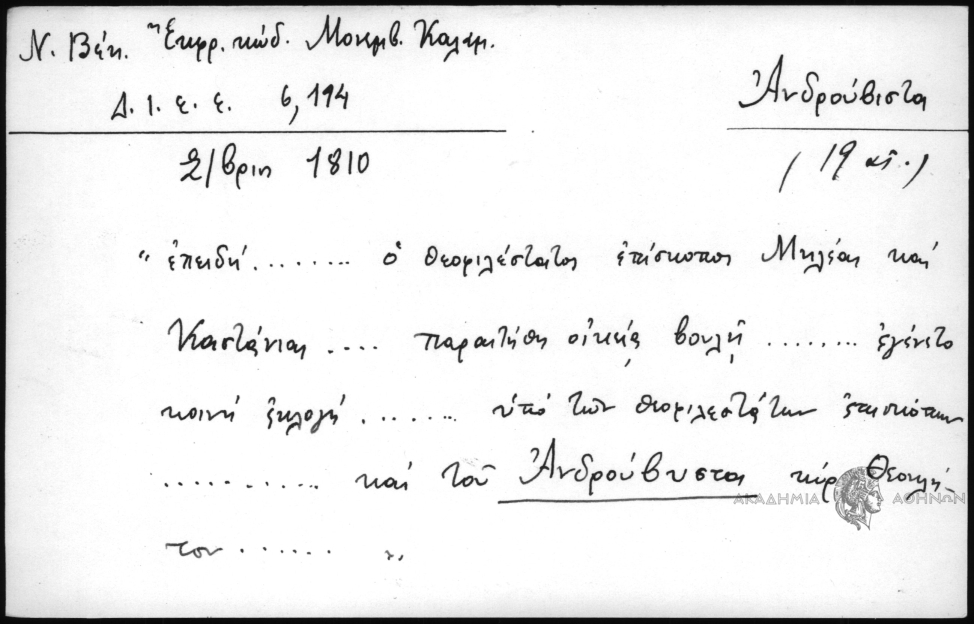 Ν. Βέη. "Ἐκφρ. κώδ. Μονεμβ. Καλαμ.
Δ. Ι. Ε. Ε. 6, 194
Ἀνδρούβιστα
2/βρίη 1810
(19 αἰ.)
"ἐπειδή ........ ὁ θεοφιλέστατος ἐπίσκοπος Μηλέας καί
Καστάνιας .... παραιτήθη οἰκείᾳ βουλῇ ........ ἐγένετο
κοινή ἐκλογή ....... ὑπό τῶν θεοφιλεστάτων ἐπισκόπων
........... καί τοῦ Ἀνδρούβυστας κύρ Θεοκλή-
του ...... "
ΑΚΑΔΗΜΙΑ ΑΘΗΝΩΝ